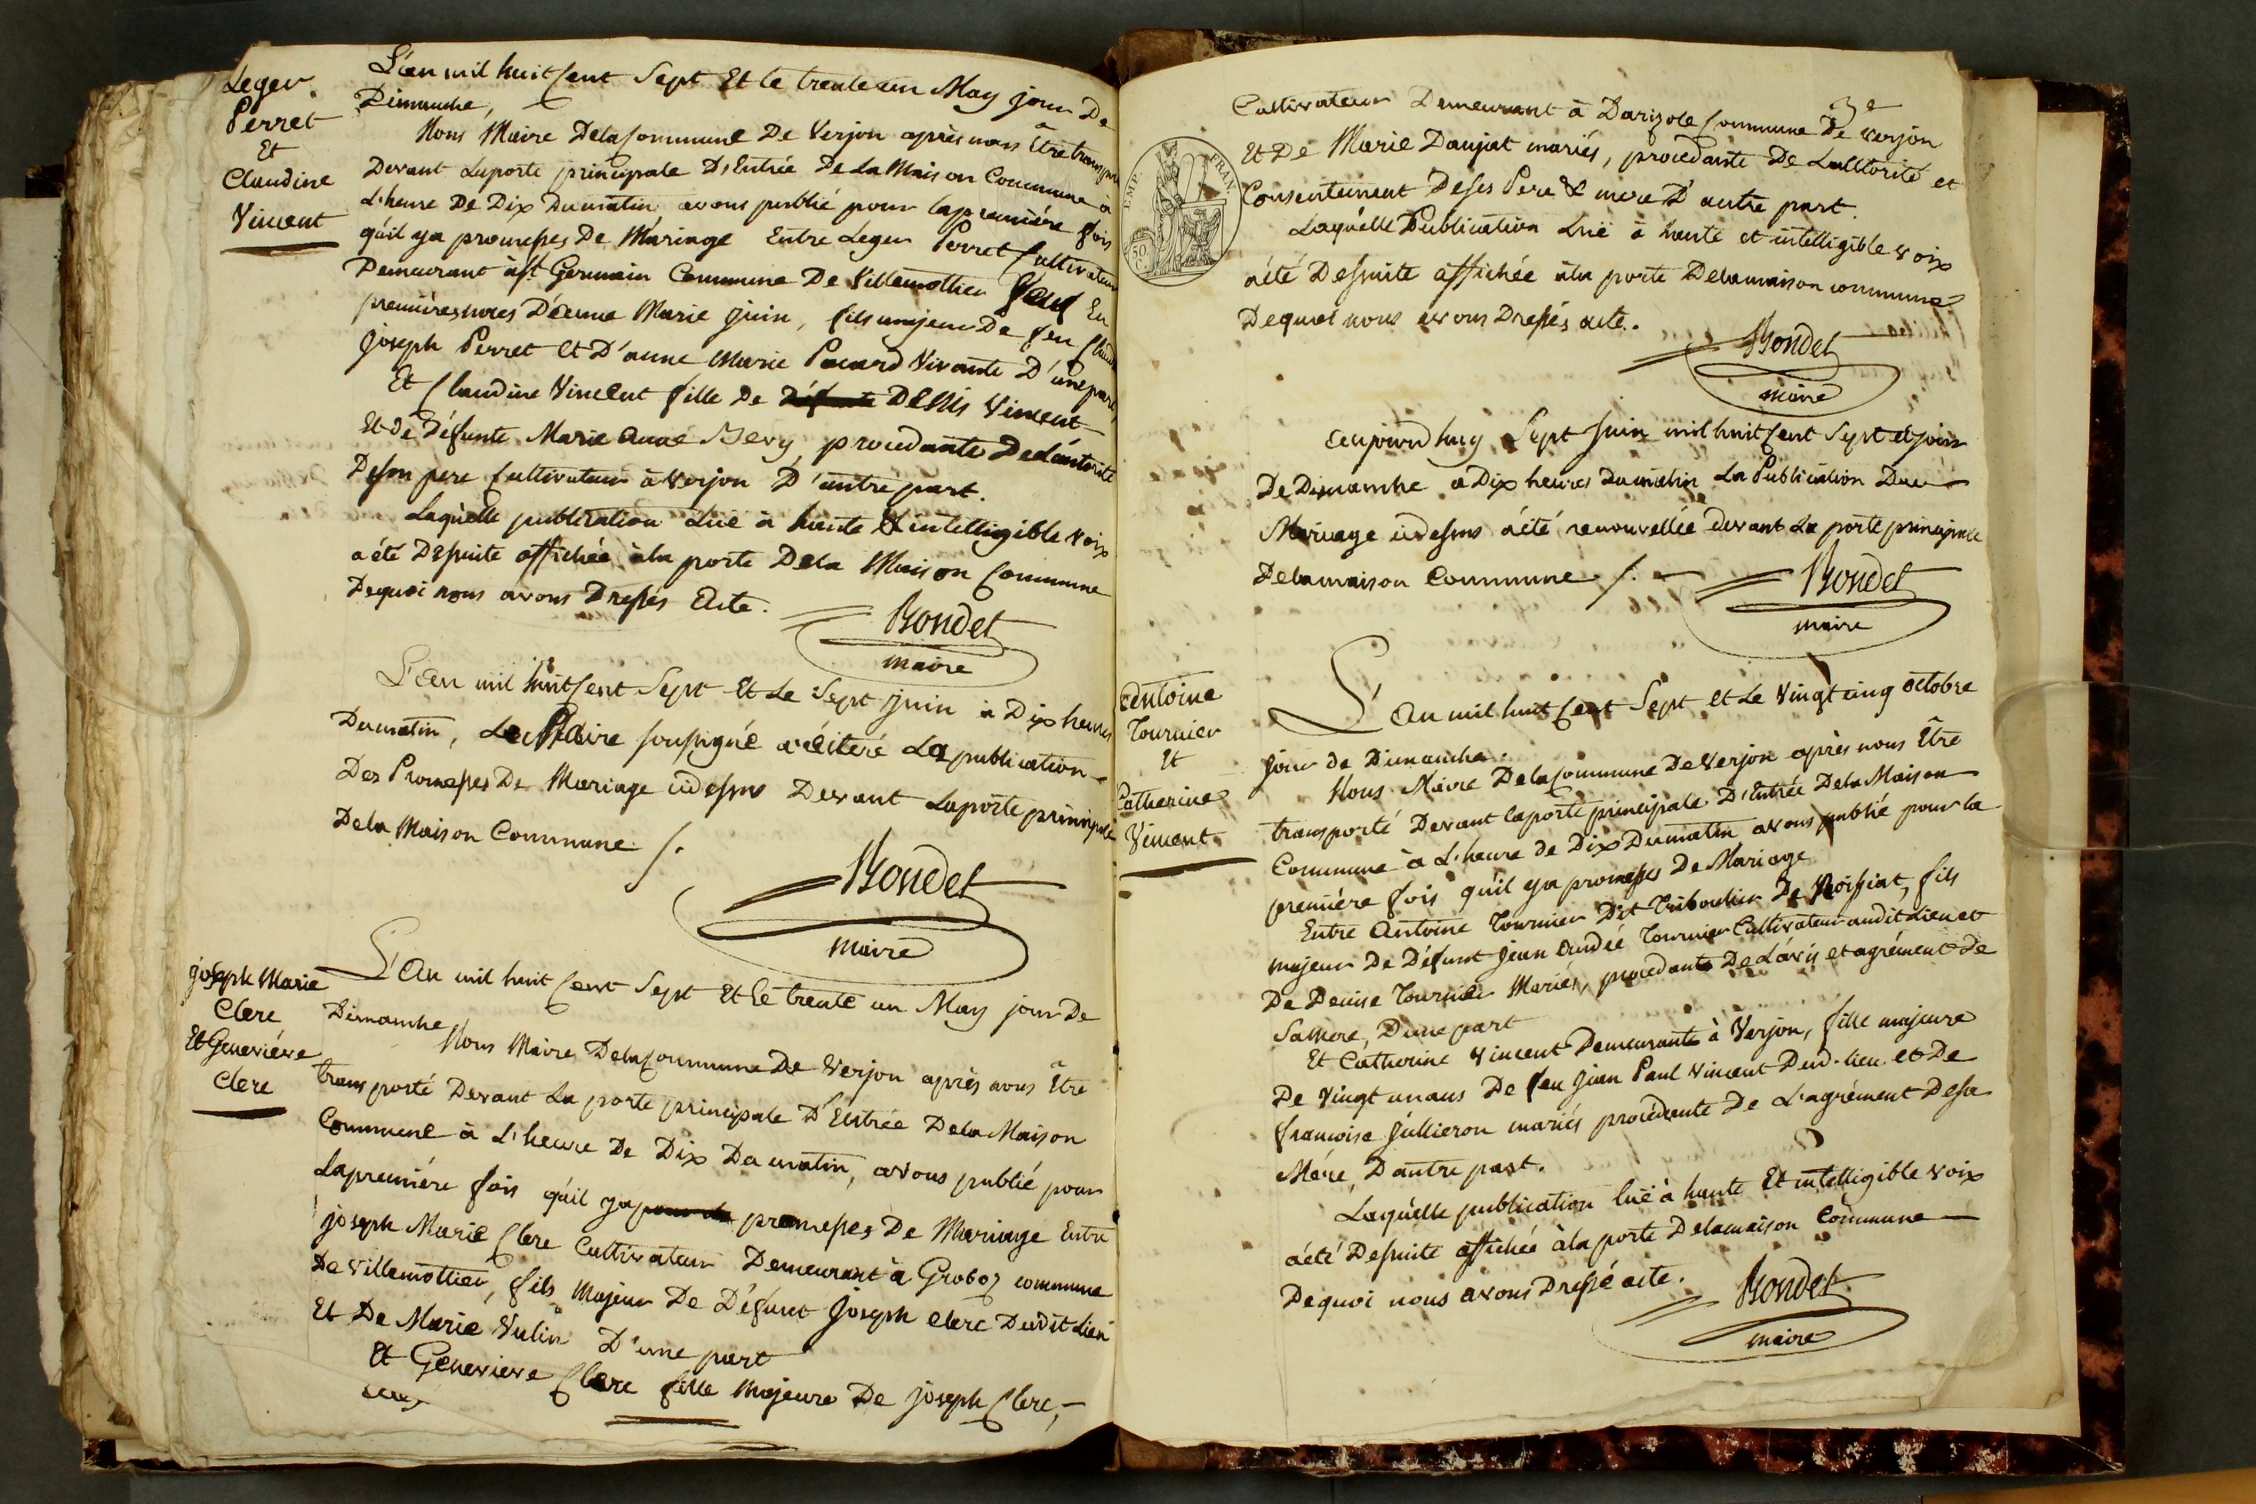 Leger
Perret
Et
Claudine
Vincent
L'an mil huit Cent Sept Et le trente un May jour De
Dimanche,
Nous Maire Dela Commune De Verjon après nous Être transporté
Devant la porte principale D'Entrée De La Maison Commune à
L'heure De Dix Du matin avons publié pour la premiére fois
qu'il ya promesses De Mariage Entre Leger Perret Cultivateur
Demeurant à St Germain Commune De Villemottier Veuf En
premieres noces D'anne Marie Juin, fils majeur De feu Claude
Joseph Perret et D'anne Marie Pacard Vivante D'une part,
Et Claudine Vincent fille De Denis Vincent
Et de Défunte Marie Anne Bevy, procedante De L'autorité
De son pere Cultivateur à Verjon D'autre part.
Laquelle publication Luë à haute & intelligible voix
a été Desuite affichée à la porte Dela Maison Commune
Dequoi nous avons Dressés Acte.
Bondet
maire
L'an mil huit Cent Sept Et Le Sept juin à Dix heures
Du matin, Le Maire soussigné a réiteré La publication
Des Promesses De Mariage cidessus Devant La porte principale
Dela Maison Commune /.
Bondet
maire
joseph Marie
Clerc
Et Geneviéve
Clerc
L'An mil huit Cent Sept Et le trente un May jour De
Dimanche
Nous Maire Dela Commune De Verjon après nous Être
transporté Devant La porte principale D'Entrée Dela Maison
Commune à L'heure De Dix Du matin, avons publié pour
La premiére fois qu'il ya promesses De Mariage Entre
joseph Marie Clerc Cultivateur Demeurant à Groboz commune
De Villemottier, fils Majeur De Défunt Joseph Clerc Dudit Lieu
Et De Marie Vulin D'une part
Et Genevieve Clerc fille Majeure De joseph Clerc,
3e
Cultivateur Demeurant à Darizole Commune De Verjon
Et De Marie Daujat mariés, procedante De L'autorité et
Consentement De ses Pere & mere D'autre part.
Laquelle Publication Luë à haute et intelligible voix
a été Desuite affichée à la porte Delamaison commune
Dequoi nous avons Dressés acte.
Bondet
maire
EMP. FRAN.
50
C.
aujourd huy Sept Juin mil huit Cent Sept et jour
De Dimanche a Dix heures du matin La Publication Du
Mariage cidessus a été renouvellée devant La porte principale
Delamaison Commune /.
Bondet
maire
Antoine
Tournier
Et
Catherine
Vincent
L'An mil huit Cent Sept et Le Vingt cinq octobre
jour de Dimanche.
Nous Maire Dela Commune De Verjon après nous Être
transporté Devant la porte principale D'Entrée Dela Maison
Commune à L'heure de Dix Du matin avons publié pour la
premiére fois qu'il ya promesses De Mariage
Entre Antoine Tournier Dit Triboulier De Roissiat, fils
majeur De Défunt Jean André Tournier Cultivateur audit Lieu et
De Denise Tournier Mariés, procedante De L'avis et agrément de
Sa Mere, D'une part
Et Catherine Vincent Demeurante à Verjon, fille majeure
De Vingt un ans De feu Jean Paul Vincent Dud. lieu et De
françoise Jullieron mariés procédante De L'agrément De sa
Mére, D'autre part.
Laquelle publication luë à haute Et intelligible voix
a été Desuite affichée à la porte Delamaison Commune
Dequoi nous avons Dressé acte.
Bondet
maire